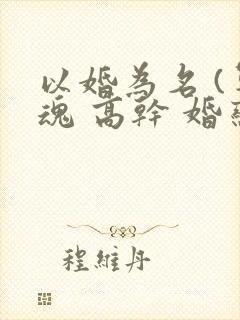 以婚為名(
魂 高幹 婚
程維丹